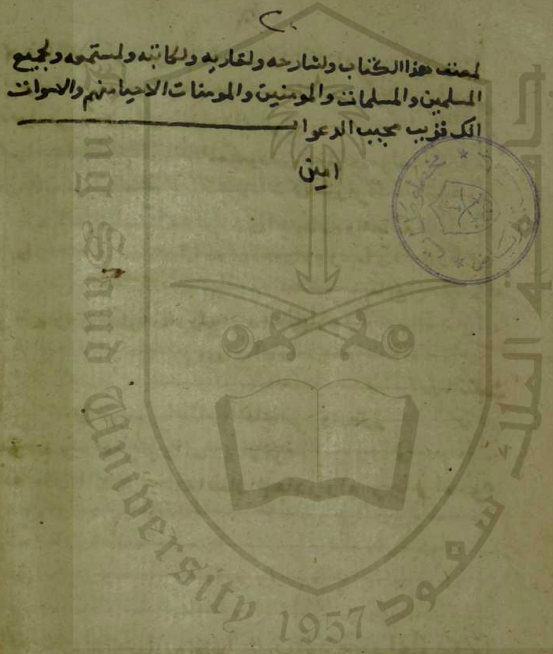 ٢٠
لمصنف هذا الكتاب ولشارحه ولقاريه ولكاتبه ولمستمعه ولجميع
المسلمين والمسلمات والمومنين والمومنات الاحيا منهم والاموات
انك قريب مجيب الدعوا
امين
جامعة الملك سعود
King Saud University 1957